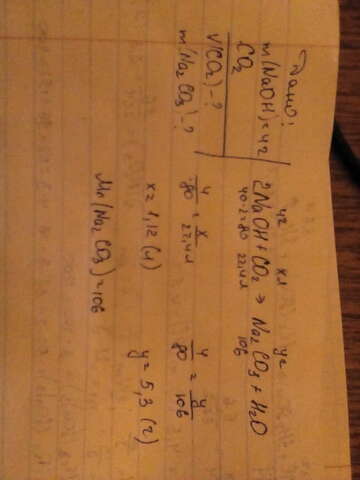 Дано:
m(NaOH)=4г
CO₂
V(CO₂)-?
m(Na₂CO₃)-?
4г xл yг
2NaOH+CO₂→Na₂CO₃+H₂O
40·2=80 22,4л 106
4/80 = x/22,4л
4/80 = y/106
x=1,12 (л)
y=5,3 (г)
Mr(Na₂CO₃)=106